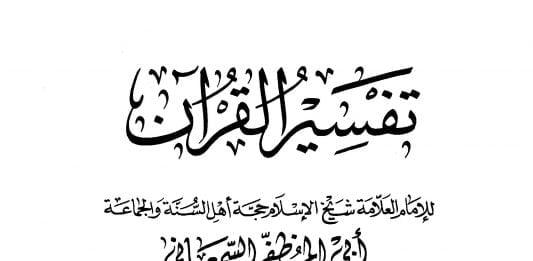 تَفْسِيرُ الْقُرْآنِ
للإمام العلّامة شيخ الإسلام حجّة أهل السُّنّة والجماعة
أبي المظفّر السّمعاني